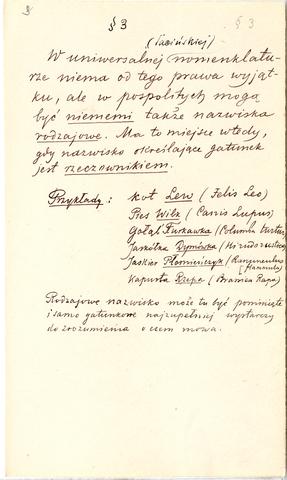 § 3
§ 3
(łacińskiej)
W uniwersalnej nomenklatu-
rze niema od tego prawa wyjąt-
ku, ale w pospolitych mogą
być niememi także nazwiska
rodzajowe. Ma to miejsce wtedy,
gdy nazwisko określające gatunek
jest rzeczownikiem.
Przykłady: Kot Lew (Felis Leo)
Pies Wilk (Canis Lupus)
Gołąb Turkawka (Columba turtur
Jaskółka Dymówka (Hirudo rustica
Jaskier Płomieńczyk (Ranunculus
Flammula)
Kapusta Rzepa (Brassica Rapa)
Rodzajowe nazwisko może tu być pominięte
i samo gatunkowe najzupełniej wystarczy
do zrozumienia o czem mowa.